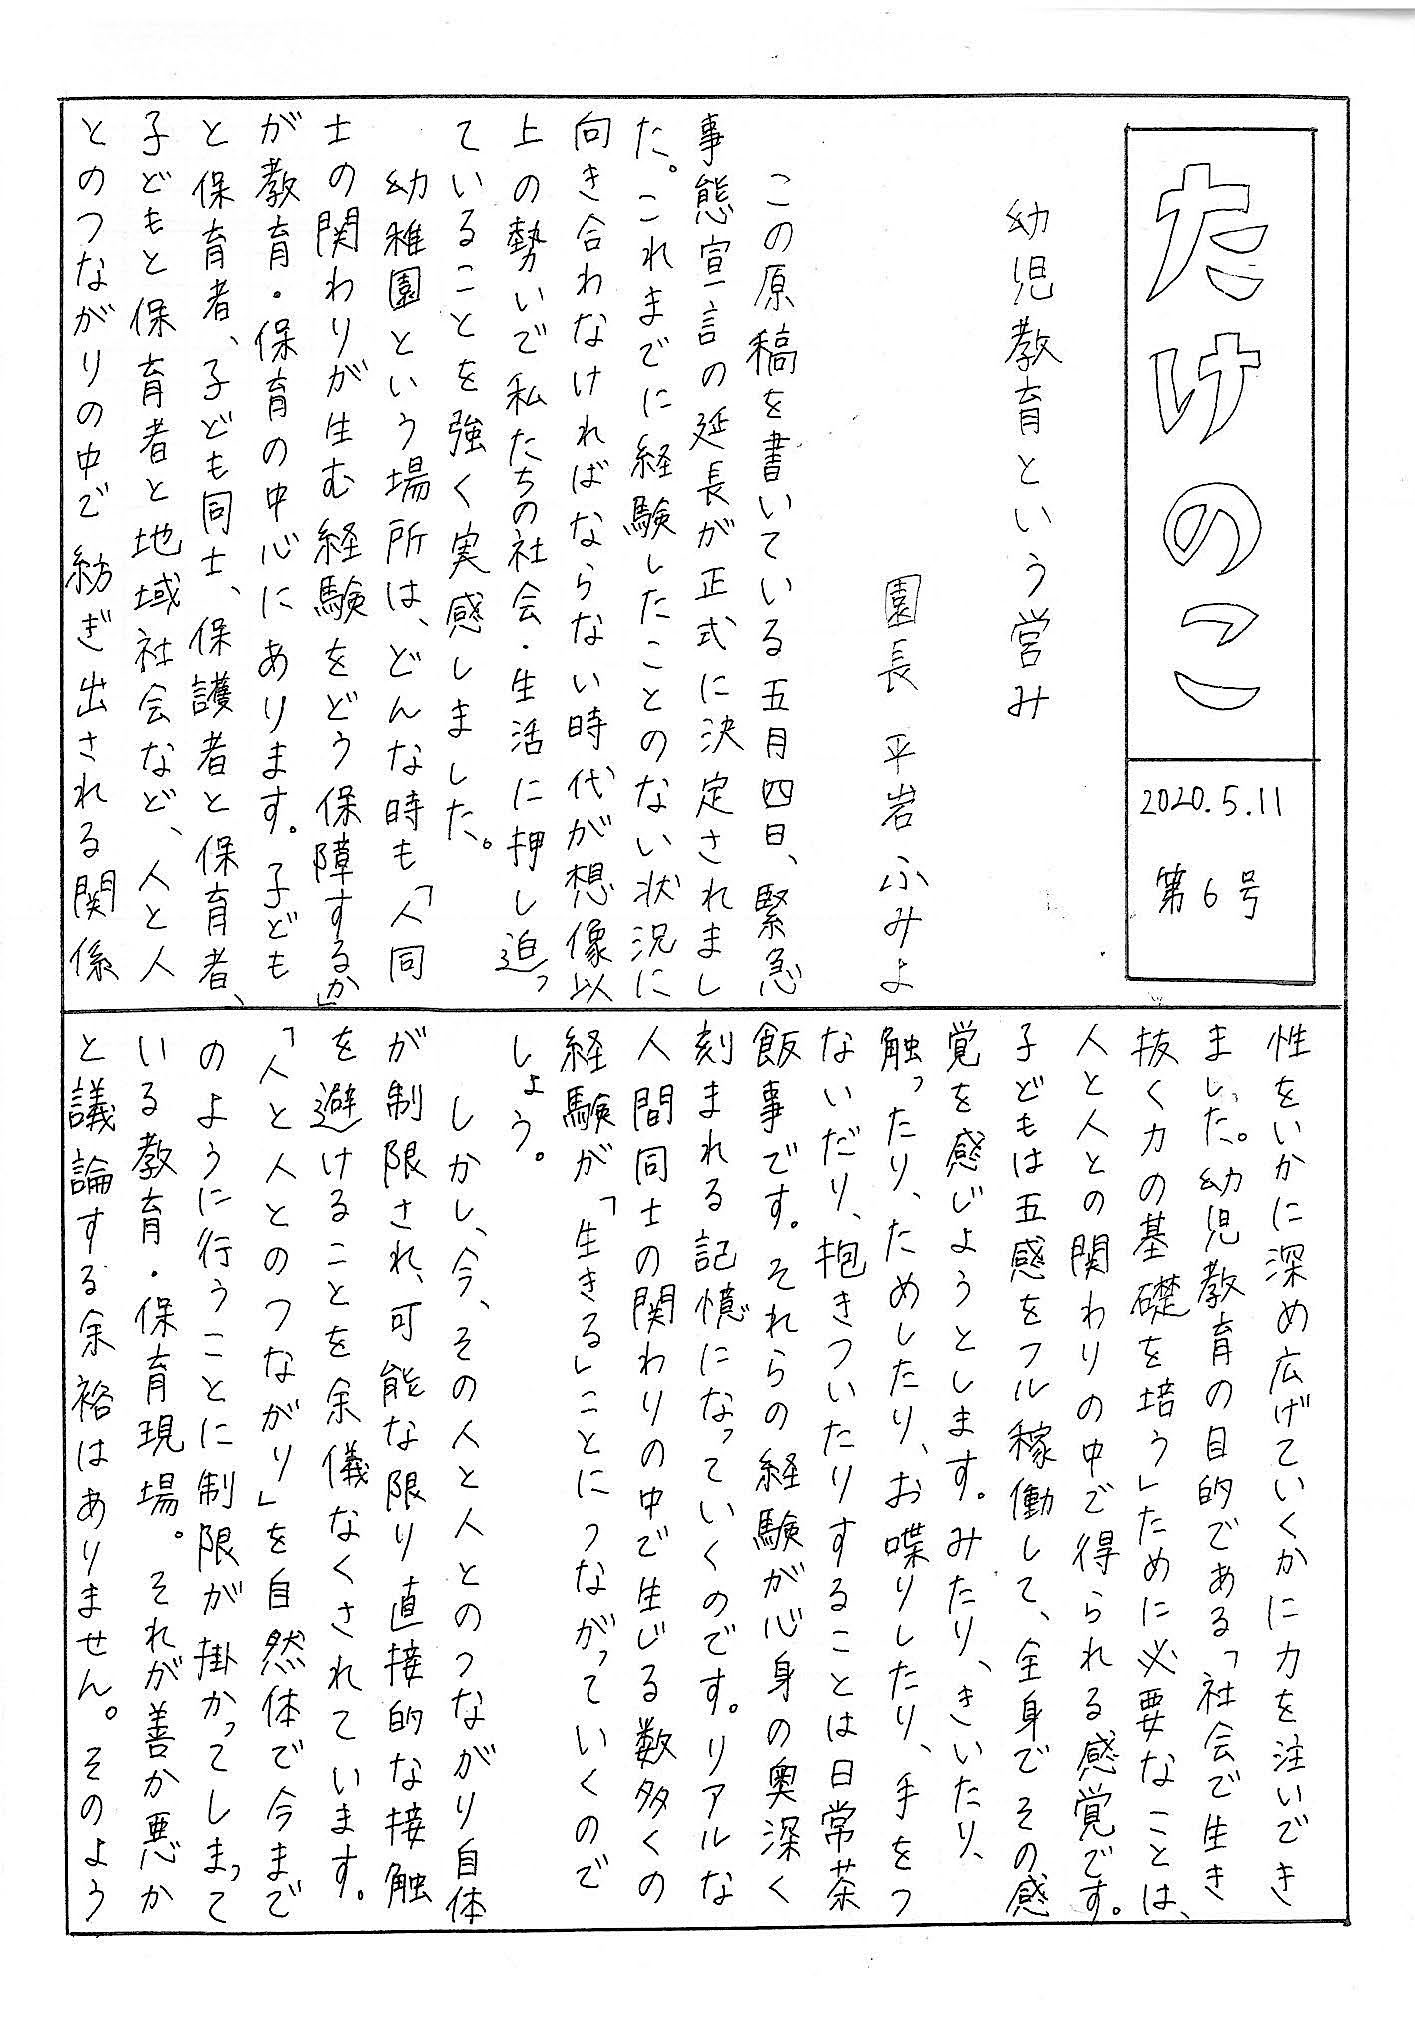 たけのこ
2020.5.11
第6号
幼児教育という営み
園長 平岩 ふみよ
この原稿を書いている五月四日、緊急
事態宣言の延長が正式に決定されまし
た。これまでに経験したことのない状況に
向き合わなければならない時代が想像以
上の勢いで私たちの社会・生活に押し迫っ
ていることを強く実感しました。
幼稚園という場所は、どんな時も「人同
士の関わりが生む経験をどう保障するか」
が教育・保育の中心にあります。子ども
と保育者、子ども同士、保護者と保育者、
子どもと保育者と地域社会など、人と人
とのつながりの中で紡ぎ出される関係
性をいかに深め広げていくかに力を注いでき
ました。幼児教育の目的である「社会で生き
抜く力の基礎を培う」ために必要なことは、
人と人との関わりの中で得られる感覚です。
子どもは五感をフル稼働して、全身でその感
覚を感じようとします。みたり、きいたり、
触ったり、ためしたり、お喋りしたり、手をつ
ないだり、抱きついたりすることは日常茶
飯事です。それらの経験が心身の奥深く
刻まれる記憶になっていくのです。リアルな
人間同士の関わりの中で生じる数多くの
経験が「生きる」ことにつながっていくので
しょう。
しかし、今、その人と人とのつながり自体
が制限され、可能な限り直接的な接触
を避けることを余儀なくされています。
「人と人とのつながり」を自然体で今まで
のように行うことに制限が掛かってしまって
いる教育・保育現場。それが善か悪か
と議論する余裕はありません。そのよう